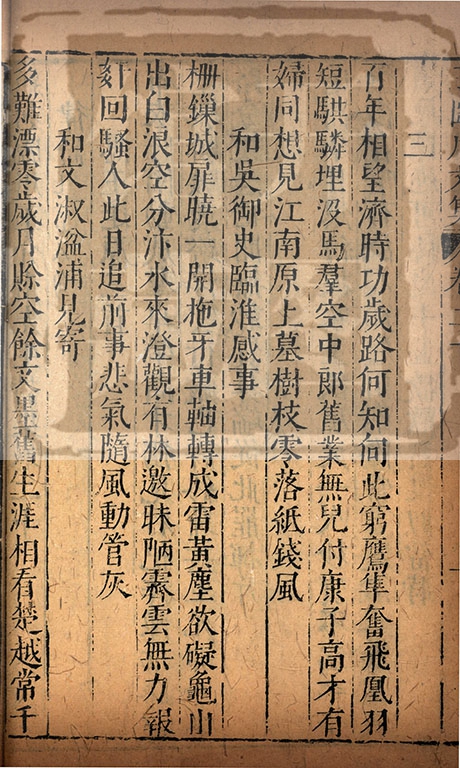 三
百年相望濟時功歲路何知向此窮鷹隼奮飛凰羽
短騏驎埋没馬羣空中郎舊業無兒付康子高才有
婦同想見江南原上墓樹枝零落紙錢風
和吳御史臨淮感事
柵鏁城扉曉一開拖牙車軸轉成雷黃塵欲礙龜山
出白浪空分汴水來澄觀有林邀昧陋霽雲無力報
奸回騷人此日追前事悲氣隨風動管灰
和文淑湓浦見寄
多難漂零歲月賒空餘文墨舊生涯相看楚越常千